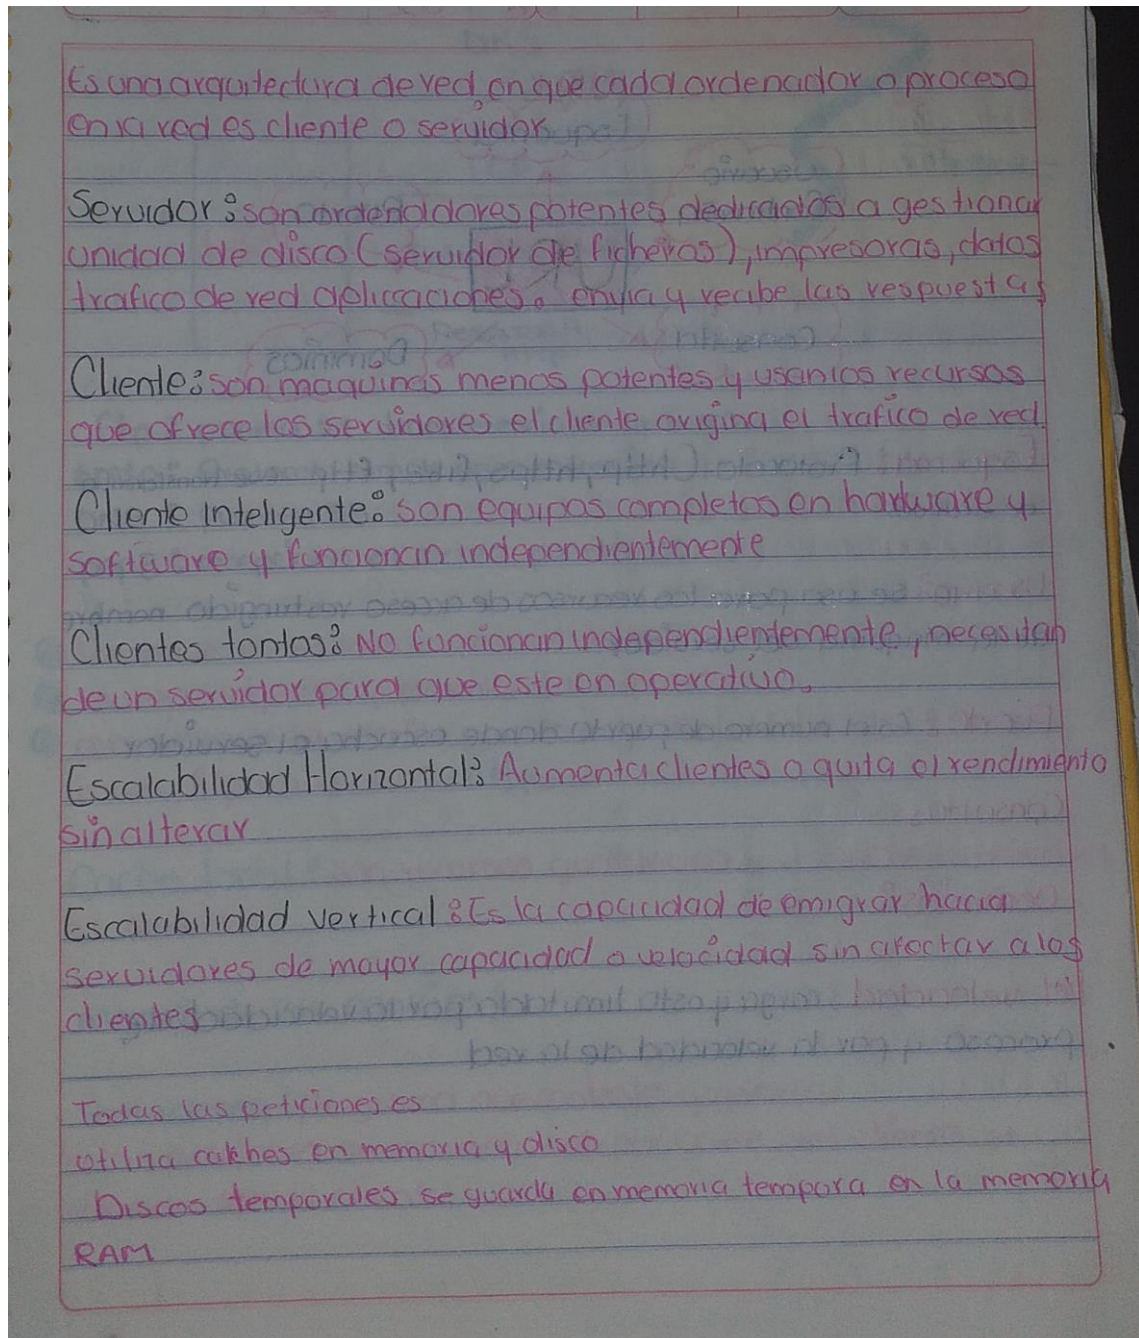 Es una arquitectura de red en que cada ordenador o proceso
en la red es cliente o servidor
Servidor: son ordenadores potentes dedicados a gestionar
unidad de disco (servidor de ficheros), impresoras, datos
trafico de red aplicaciones. envia y recibe las respuestas
Cliente: son maquinas menos potentes y usan los recursos
que ofrece los servidores el cliente origina el trafico de red
Cliente inteligente: son equipos completos en hardware y
software y funcionan independientemente
Clientes tontos: No funcionan independientemente, necesitan
de un servidor para que este en operativo.
Escalabilidad Horizontal: Aumenta clientes o quita el rendimiento
sin alterar
Escalabilidad vertical: Es la capacidad de emigrar hacia
servidores de mayor capacidad o velocidad sin afectar a los
clientes
Todas las peticiones es
utiliza en memoria y disco
Discos temporales se guarda en memoria tempora en la memoria
RAM